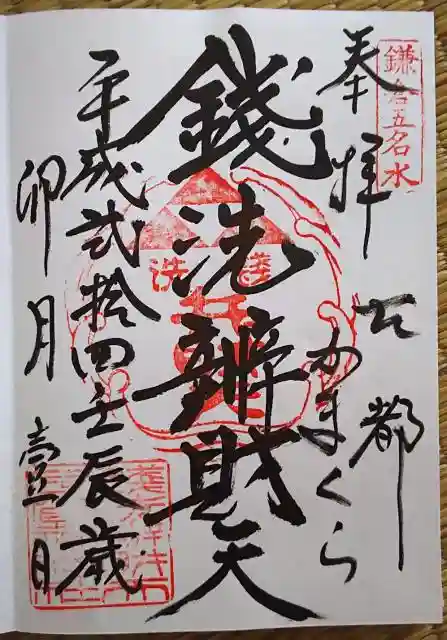 鎌倉五名水
奉拝
古都
かまくら
錢洗辨財天
錢洗
平成弐拾四壬辰歳
卯月壹日